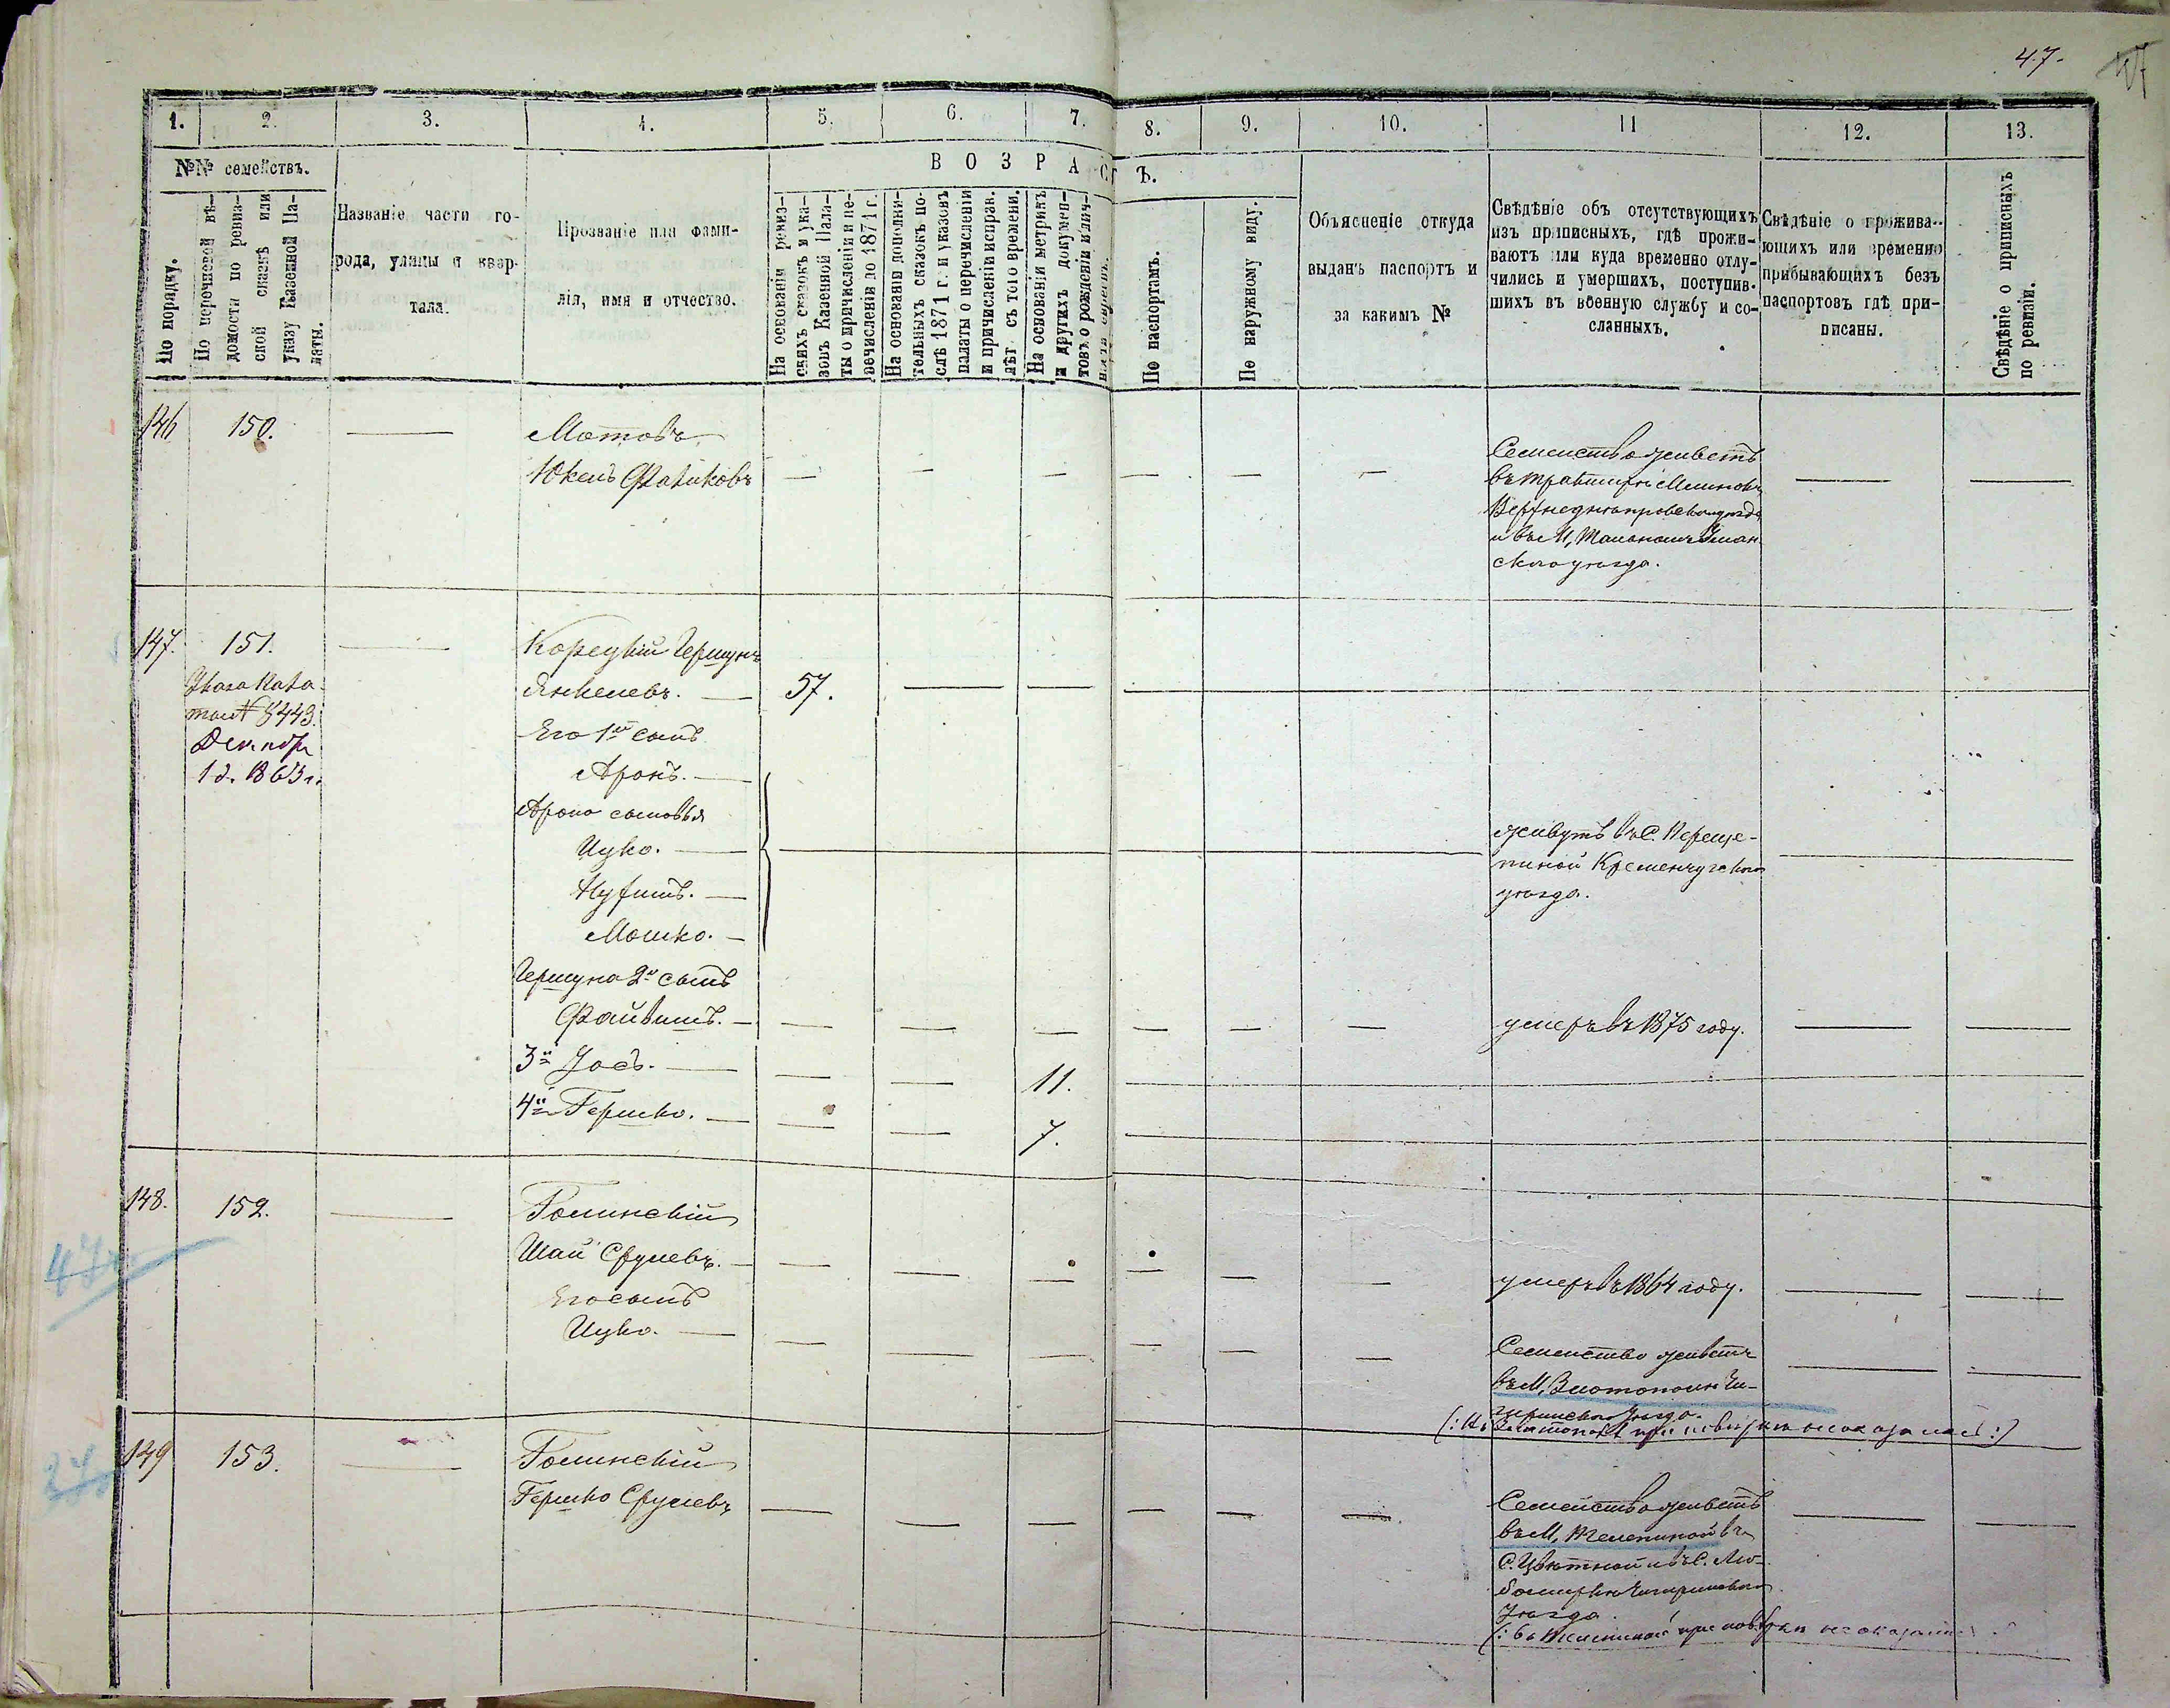 47.
47
1.
2.
3.
4.
5.
6.
7.
8.
9.
10.
11
12.
13.
№№ семействъ.
По порядку.
По перечневой вѣ-
домости по ревиз-
ской сказкѣ или
указу Казенной Па-
латы.
Названіе части го-
рода, улицы и квар-
тала.
Прозваніе или фами-
лія, имя и отчество.
ВОЗРАСТЪ.
На основаніи ревиз-
скихъ сказокъ и ука-
зовъ Казенной Пала-
ты о причисленіи и пе-
речисленіи по 1871 г.
На основаніи дополни-
тельныхъ сказокъ по-
слѣ 1871 г. и указовъ
палаты о перечисленіи
и причисленіи исправ.
лѣт съ того времени.
На основаніи метрикъ
и другихъ докумен-
товъ о рожденіи
По паспортамъ.
По наружному виду.
Объясненіе откуда
выданъ паспортъ и
за какимъ №
Свѣдѣніе объ отсутствующихъ
изъ приписныхъ, гдѣ прожи-
ваютъ или куда временно отлу-
чились и умершихъ, поступив-
шихъ въ военную службу и со-
сланныхъ.
Свѣдѣніе о прожива-
ющихъ или временно
прибывающихъ безъ
паспортовъ гдѣ при-
писаны.
Свѣдѣніе о приписныхъ
по ревизіи.
146
150.
Мотовъ
Юкель Фаликовъ
Семейство живетъ
въ
Верхнеднѣпровскаго уѣзда
и въ М, Тальномъ Уман
скаго уѣзда.
147.
151.
Указа Пала
ты № 8443.
Декабр
1 д. 1863 г.
Корецкій Гершунъ
Янкелевъ.
57.
Его 1й сынъ
Аронъ.
Арона сыновья
Ицко.
Нухимъ.
Мошко.
живутъ въ С. Переще-
пиной Кременчугскаго
уѣзда.
Гершуна 2й сынъ
Файвишъ.
умеръ въ 1875 году.
3й Іосъ.
11.
4й Гершко.
7.
148.
152.
Голинскій
Шай Срулевъ.
умеръ въ 1864 году.
Его сынъ
Ицко.
Семейство живетъ
въ М, Златополи Чи-
гиринскаго Уѣзда.
(: Въ Златополѣ при повѣркѣ не оказалось :)
149
153.
Голинскій
Гершко Срулевъ
Семейство живетъ
въ М, Телепиной въ
С. Цвѣтной и въ С. Лю-
бомирки Чигиринскаго
Уѣзда.
(: въ Телепиной при повѣркѣ не оказались